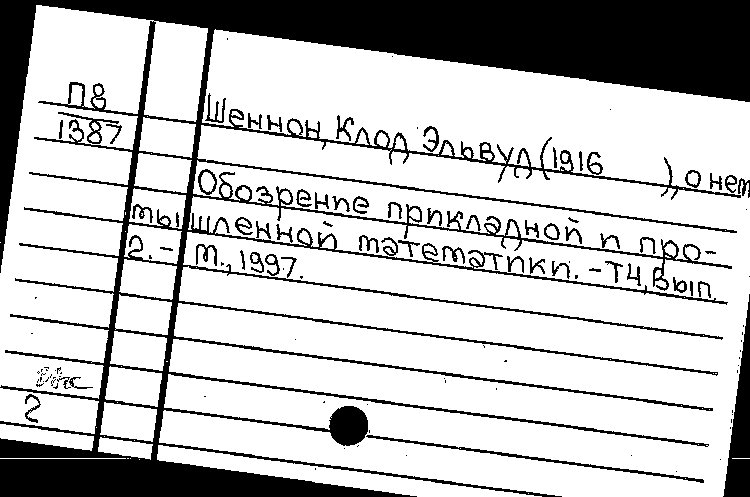 П8
1387
Шеннон, Клод Эльвуд (1916 ), о нем
Обозрение прикладной и про-
мышленной математики. - Т4, Вып.
2. - М., 1997.
2